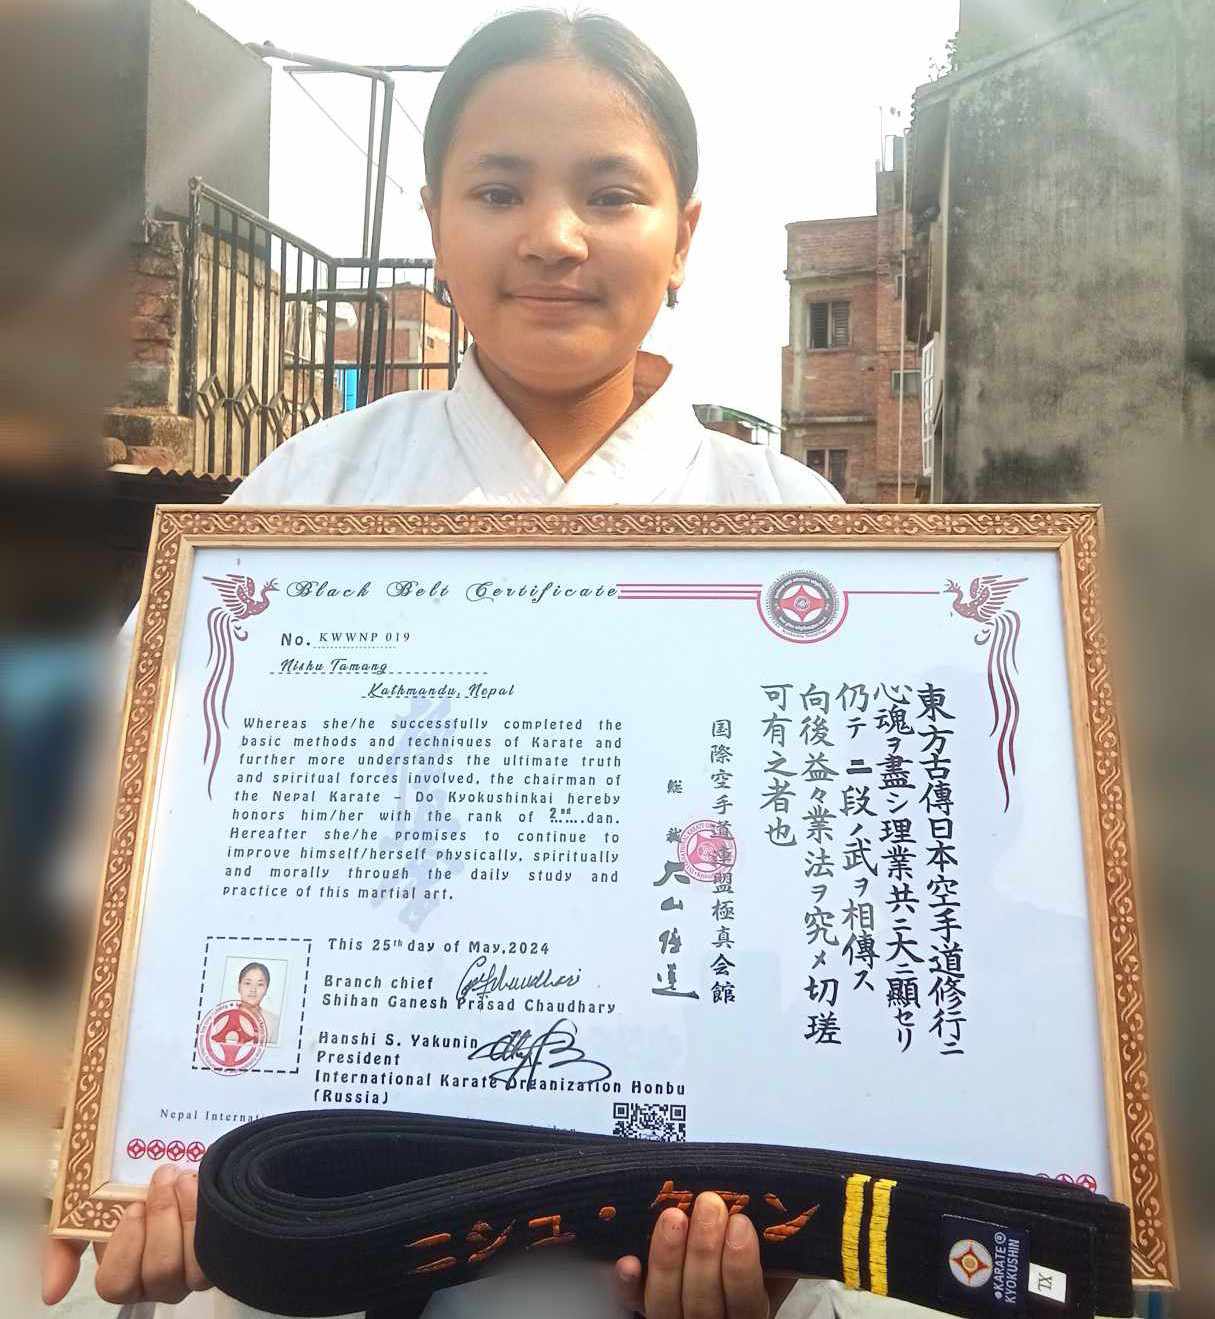 Black Belt Certificate
No. KWWNP 019
Nishu Tamang
Kathmandu, Nepal
Whereas she/he successfully completed the
basic methods and techniques of Karate and
further more understands the ultimate truth
and spiritual forces involved, the chairman of
the Nepal Karate - Do Kyokushinkai hereby
honors him/her with the rank of 2nd dan.
Hereafter she/he promises to continue to
improve himself/herself physically, spiritually
and morally through the daily study and
practice of this martial art.
This 25th day of May, 2024
Branch chief
Shihan Ganesh Prasad Chaudhary
Hanshi S. Yakunin
President
International Karate Organization Honbu
(Russia)
Nepal
東方古傳日本空手道修行ニ
心魂ヲ盡シ理業共ニ大ニ顯セリ
仍テ二段ノ武ヲ相傳ス
向後益々業法ヲ究メ切瑳
可有之者也
国際空手道連盟極真会館
総裁大山倍達
ニシュ・タマン
KARATE
KYOKUSHIN
XL